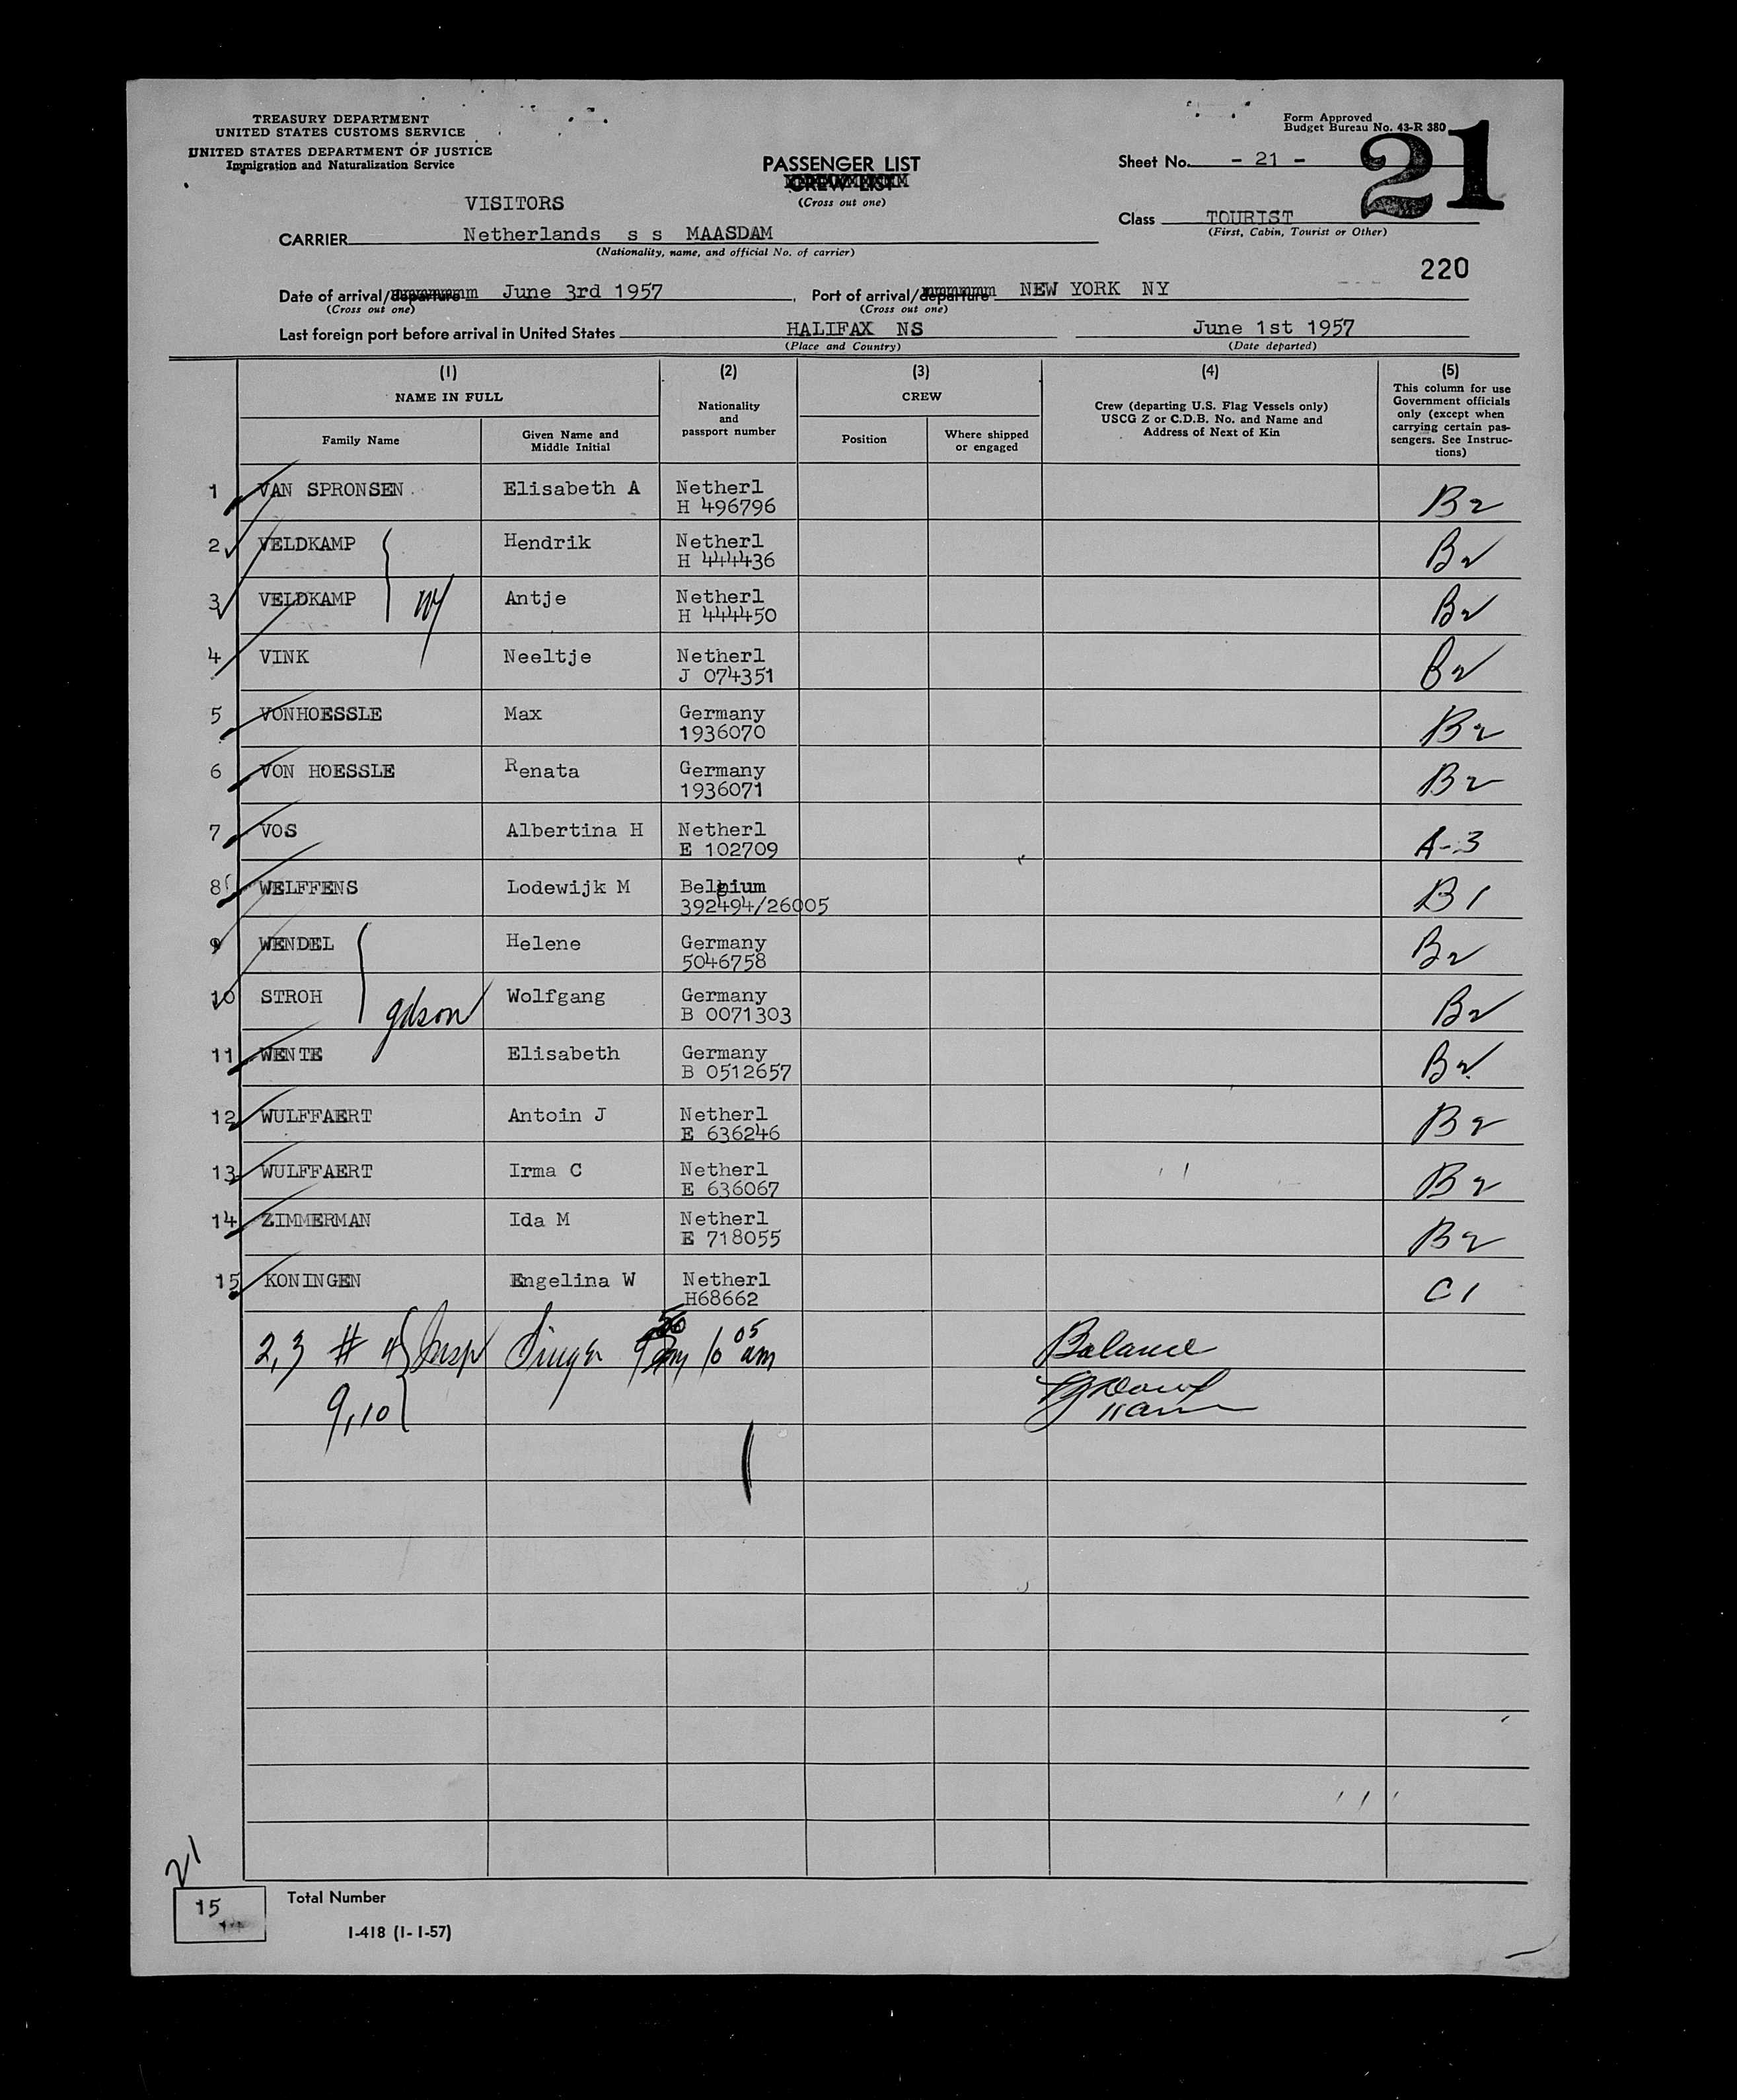 TREASURY DEPARTMENT
UNITED STATES CUSTOMS SERVICE
UNITED STATES DEPARTMENT OF JUSTICE
Immigration and Naturalization Service
Form Approved
Budget Bureau No. 43-R 380
21
PASSENGER LIST
CREW LIST
(Cross out one)
Sheet No. - 21 -
VISITORS
Class TOURIST
(First, Cabin, Tourist or Other)
CARRIER Netherlands s s MAASDAM
(Nationality, name, and official No. of carrier)
220
Date of arrival/departure June 3rd 1957, Port of arrival/departure NEW YORK NY
(Cross out one) (Cross out one)
Last foreign port before arrival in United States HALIFAX NS June 1st 1957
(Place and Country) (Date departed)
(1) (2) (3) (4) (5)
NAME IN FULL
Family Name
Given Name and Middle Initial
Nationality and passport number
CREW
Position
Where shipped or engaged
Crew (departing U.S. Flag Vessels only)
USCG Z or C.D.B. No. and Name and
Address of Next of Kin
This column for use
Government officials
only (except when
carrying certain pas-
sengers. See Instruc-
tions)
1 VAN SPRONSEN. Elisabeth A Netherl B2
H 496796
2 VELDKAMP Hendrik Netherl B2
H 444436
3 VELDKAMP W Antje Netherl B2
H 444450
4 VINK Neeltje Netherl B2
J 074351
5 VONHOESSLE Max Germany B2
1936070
6 VON HOESSLE Renata Germany B2
1936071
7 VOS Albertina H Netherl A-3
E 102709
8 WELFFENS Lodewijk M Belgium B1
392494/26005
9 WENDEL Helene Germany B2
5046758
10 STROH gdson Wolfgang Germany B2
B 0071303
11 WENTE Elisabeth Germany B2
B 0512657
12 WULFFAERT Antoin J Netherl B2
E 636246
13 WULFFAERT Irma C Netherl B2
E 636067
14 ZIMMERMAN Ida M Netherl B2
E 718055
15 KONINGEN Engelina W Netherl C1
H68662
2,3 # 4 Insp Singer 10 05 am Balance
9,10
21
15 Total Number
I-418 (1-1-57)